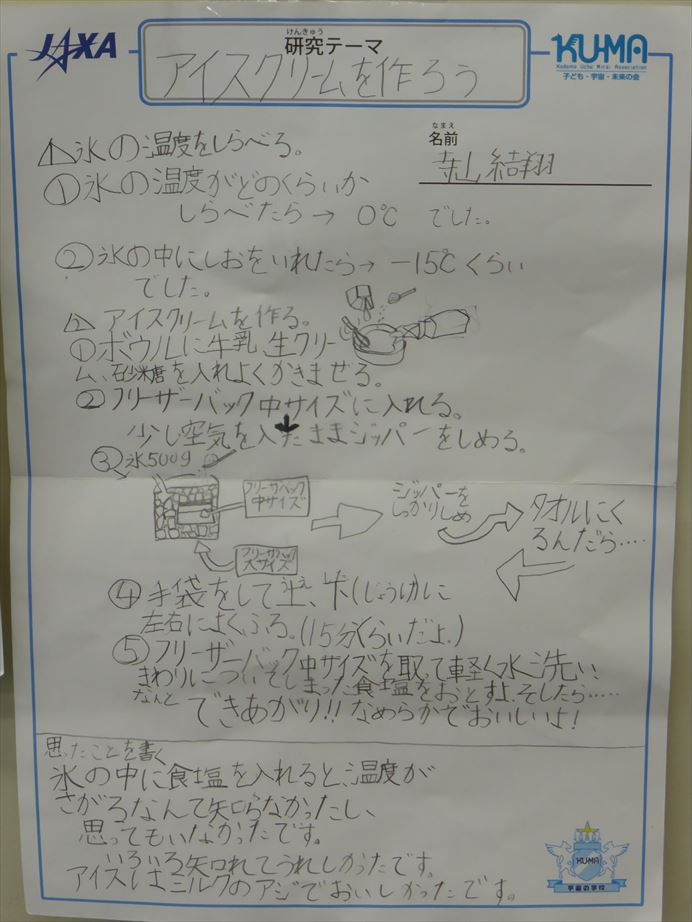 JAXA
けんきゅう
研究テーマ
アイスクリームを作ろう
KU-MA
Kodomo Uchu Mirai Association
子ども・宇宙・未来の会
なまえ
名前
結翔
1 氷の温度をしらべる。
① 氷の温度がどのくらいか
しらべたら→ 0℃ でした。
② 氷の中にしおをいれたら→ -15℃くらい
でした。
2 アイスクリームを作る。
①ボウルに牛乳、生クリー
ム、砂糖を入れよくかきまぜる。
②フリーザーバック中サイズに入れる。
少し空気を入たままジッパーをしめる。
③氷500g
フリーザバック
中サイズ
フリーザバック
大サイズ
ジッパーを
しっかりしめ
タオルにく
るんだら‥‥
④手袋をして上、下(じょうげ)に
左右によくふる。(15分くらいだよ。)
⑤フリーザーバック中サイズを取って軽く水洗い
まわりについてしまった食塩をおとすよ。そしたら‥‥‥
なんと できあがり!!なめらかでおいしいよ!
思ったことを書く
氷の中に食塩を入れると、温度が
さがるなんて知らなかったし、
思ってもいなかったです。
いろいろ知れてうれしかったです。
アイスはミルクのアジでおいしかったです。
KU-MA
宇宙の学校